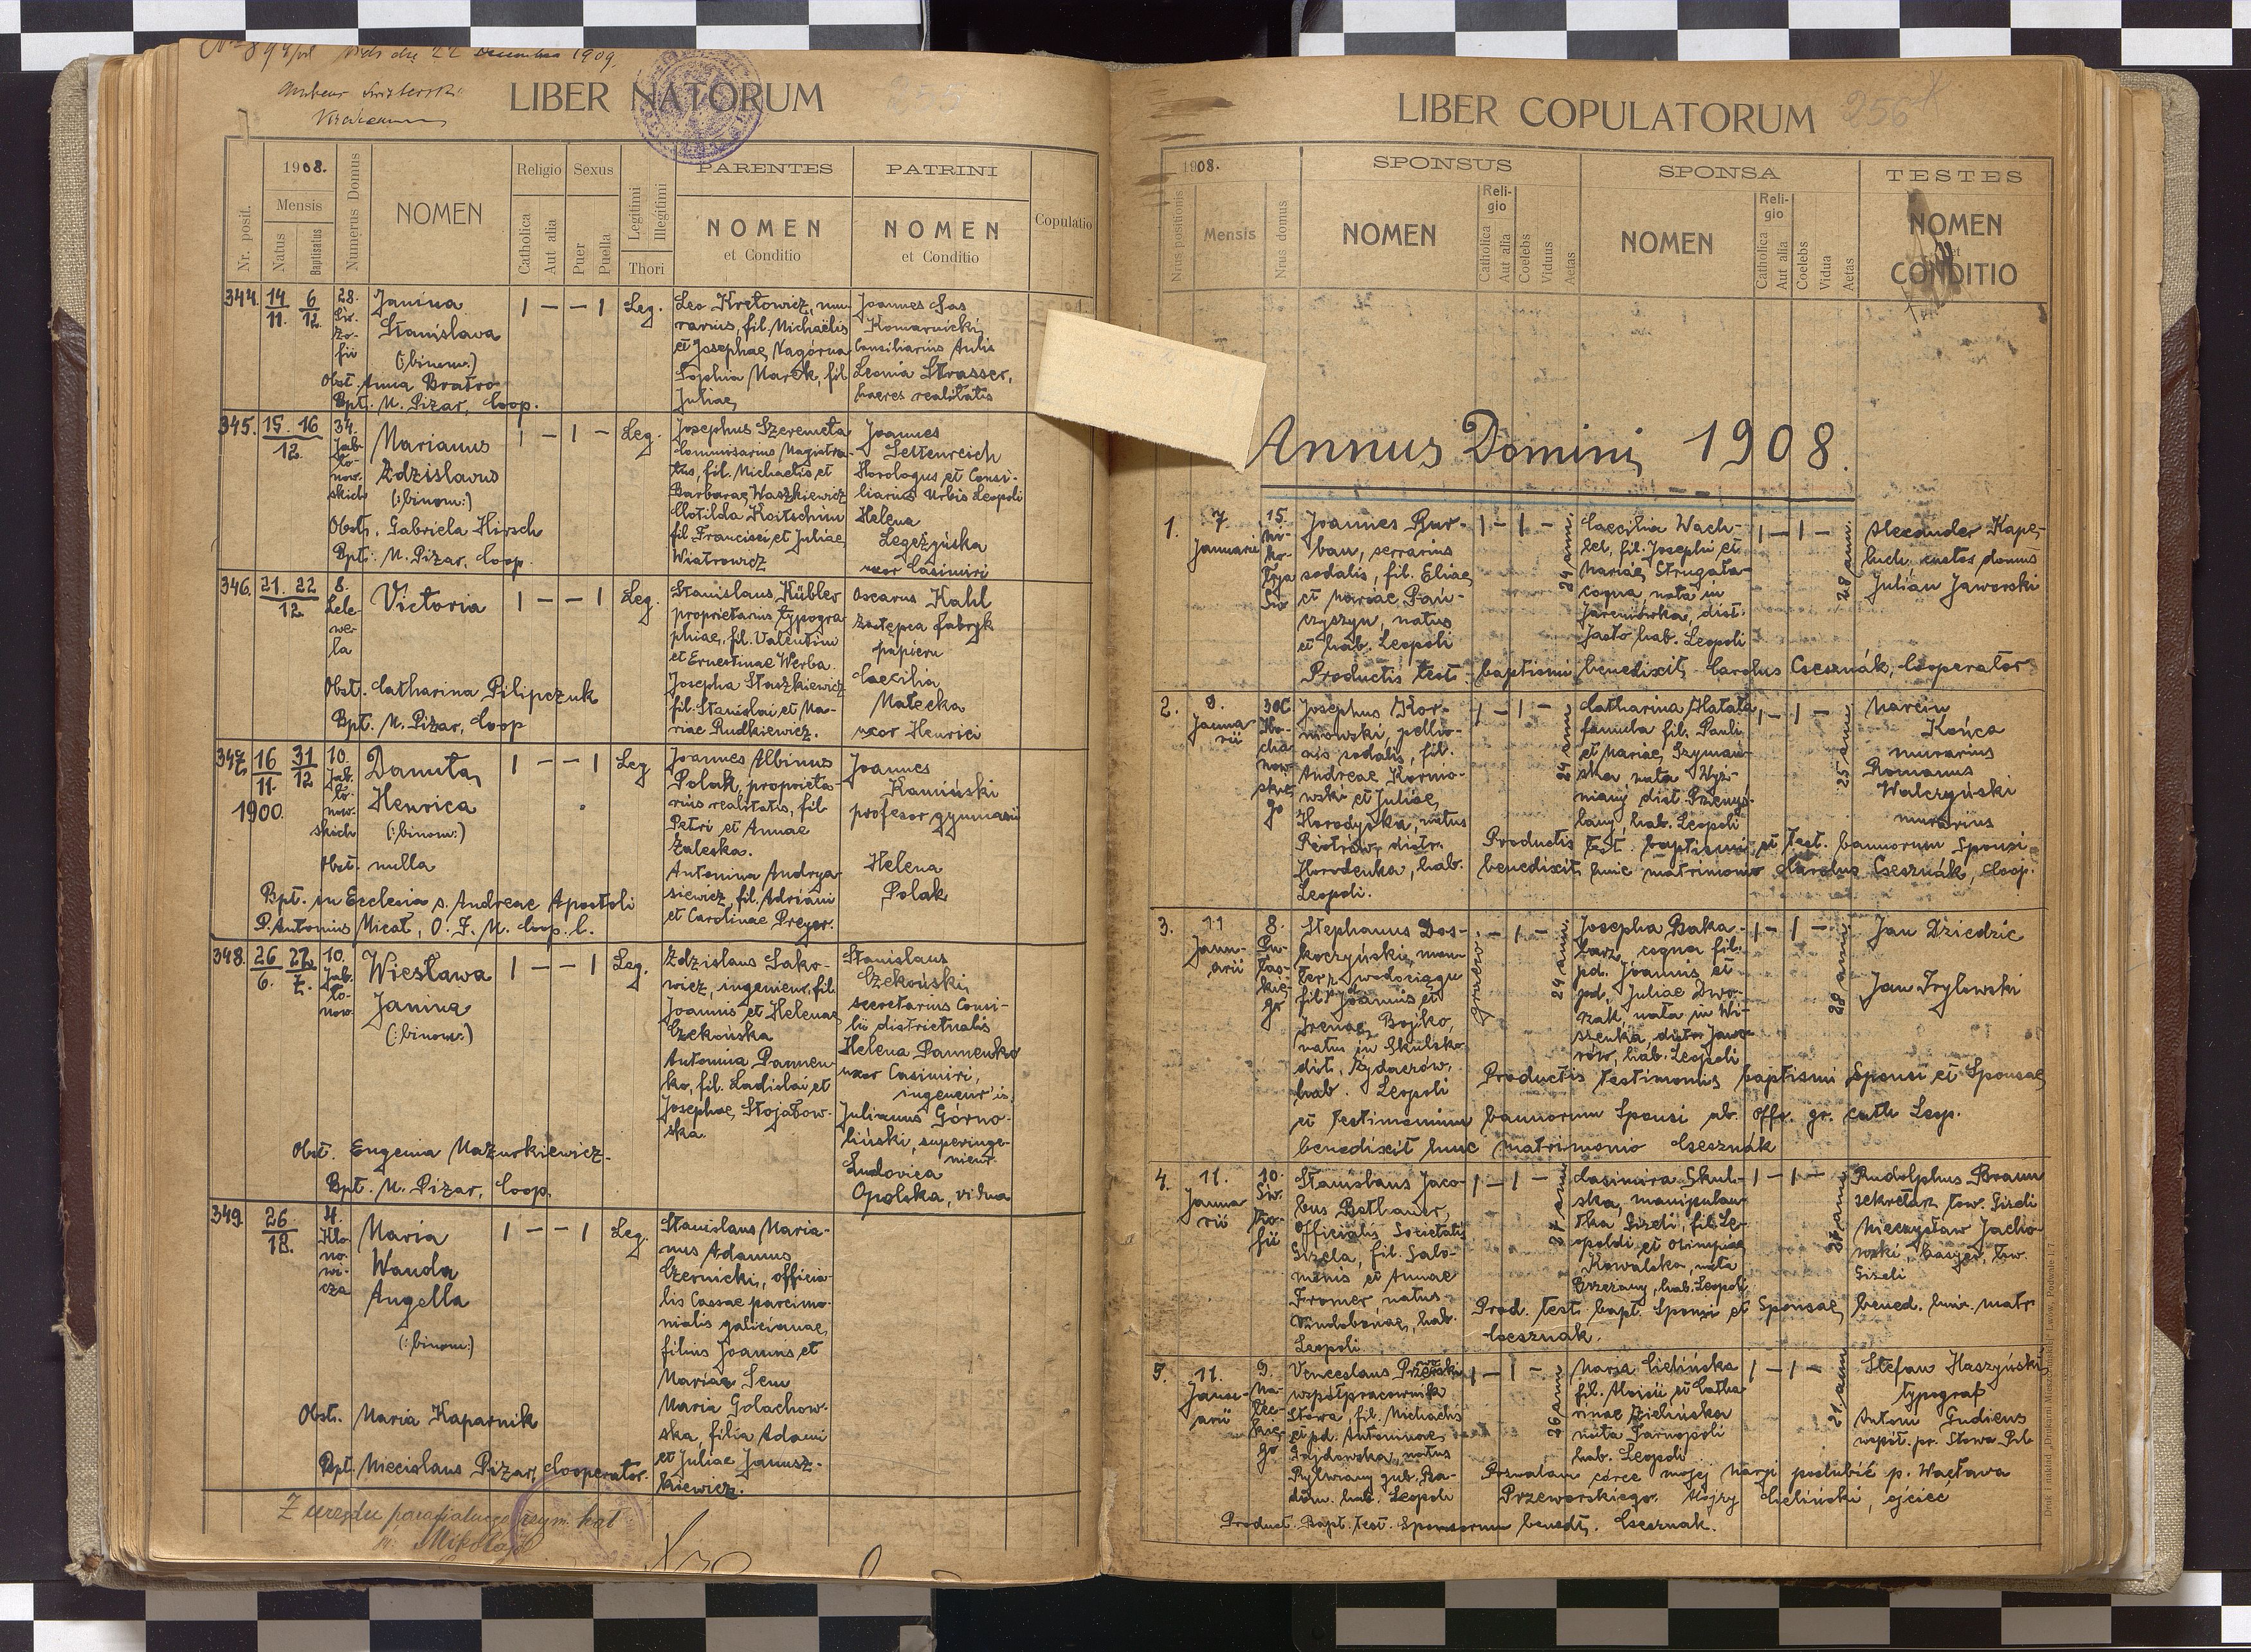 22 Decembra 1909.
LIBER NATORUM
1908.
Mensis
Nr. posit.
Natus
Baptisatus
Numerus Domus
NOMEN
Religio
Catholica
Aut alia
Sexus
Puer
Puella
Legitimi
Illegitimi
Thori
PARENTES
NOMEN
et Conditio
PATRINI
NOMEN
et Conditio
Copulatio
344. 14/11. 6/12.
28.
Św.
Zo-
fii
Janina
Stanislava
(:binom:)
Obst. Anna Bratro
Bpt. M. Pizar, Coop.
1 — — 1 Leg.
Leo Kretowicz, mu-
rarius, fil. Michaëlis
et Josephae Nagórna
Sophia Marek, fil
Juliae
Joannes Sas
Komarnicki,
Consiliarius Aulis
Leonia Strasser,
haeres realitatis
345. 15. 16/12.
34.
Jab-
ło-
now-
skich
Marianus
Zdzislaus
(:binom:)
Obst. Gabriela Hirsch
Bpt. M. Pizar, Coop
1 — 1 — Leg.
Josephus Szeremeta
Commissarius Magistra-
tus, fil. Michaelis et
Barbarae Waszkiewicz
Clotilda Koitschim
fil Francisci et Juliae
Wiatrowicz
Joannes
Settenreich
Horologus et Consi-
liarius Urbis Leopoli
Helena
Legeżyńska
uxor Casimiri
346. 21. 22/12
8.
Lele-
we-
la
Victoria
Obst. Catharina Pilipczuk
Bpt. M. Pizar, Coop
1 — — 1 Leg.
Stanislaus Kübler
proprietarius typogra
phiae, fil. Valentini
et Ernestinae Werba.
Josepha Staszkiewicz
fil. Stanislai et Ma-
riae Rudkiewicz.
Oscarus Kahl
zastępca fabryk
papieru
Caecilia
Małecka
uxor Henrici
347. 16/11. 31/12
1900.
10.
Jab.
ło-
now-
skich
Danuta
Henrica
(:binom:)
Obst. nulla
Bpt. in Ecclesia s. Andreae Apostoli
P. Antonius Micat, O. F. M. Coop. l.
1 — — 1 Leg
Joannes Albinus
Polak, proprieta-
rius realitatis, fil
Petri et Annae
Zaleska.
Antonina Andrya-
siewicz, fil. Adriani
et Carolinae Preyer.
Joannes
Kamiński
profesor gymnasii
Helena
Polak
348. 26/6. 27/7.
10.
Jab.
ło-
now.
Wiesława
Janina
(:binom:)
Obst. Eugenia Mazurkiewicz.
Bpt. M. Pizar, Coop.
1 — — 1 Leg.
Zdzislaus Sako-
wicz, ingenieur, fil.
Joannis et Helenae
Czekońska
Antonina Pannen-
ko, fil. Ladislai et
Josephae Stojałow-
ska.
Stanislaus
Czekoński,
secretarius Consi-
lii districtualis
Helena Pannenko
uxor Casimiri,
ingeneur'is.
Julianus Górno-
liński, superinge-
nieur.
Ludovica
Opolska, vidua
349. 26/18.
4.
Klo-
no-
wi-
cza
Maria
Wanda
Angella
(:binom:)
Obst. Maria Kaparnik
Bpt. Miecislaus Pizar, Cooperator.
1 — — 1 Leg.
Stanislaus Maria-
nus Adamus
Czernicki, officia-
lis Cassae parcimo-
nialis galicianae,
filius Joannis et
Mariae Sem
Maria Golachow-
ska, filia Adami
et Juliae Janusz-
kiewicz.
Z urzędu parafialnego rzym. kat
św. Mikołaja
LIBER COPULATORUM
256
1908.
Nrus positionis
Mensis
Nrus domus
SPONSUS
NOMEN
Reli-
gio
Catholica
Aut alia
Coelebs
Viduus
Aetas
SPONSA
NOMEN
Reli-
gio
Catholica
Aut alia
Coelebs
Vidua
Aetas
TESTES
NOMEN
et
CONDITIO
Annus Domini 1908.
1. 7.
Januarii
15.
Mi-
ko-
łaja
Św
Joannes Bur-
ban, serrarius
sodalis, fil. Eliae
et Mariae Pań-
czyszyn, natus
et hab. Leopoli
1 — 1 —
24 ann.
Caecilia Wach-
tel, fil. Josephi et
Mariae Strugała-
coqua nata in
Jareniówka, dist.
Jasło hab. Leopoli
1 — 1 —
28 ann.
Alexander Kape-
luch, custos domus
Julian Jaworski
Productis test. baptismi benedixit Carolus Csesznák, Cooperator
2. 9.
Janua
rii
30C
Ko-
cha
now
skie
go
Josephus Kor-
niowski, pellio-
nis sodalis, fil.
Andreae Kornio-
wski et Juliae
Horodyska, natus
Piotrów, distr.
Horodenka, hab.
Leopoli.
1 — 1 —
24 ann
Catharina Hatała
famula fil. Pauli
et Mariae Szymań-
ska nata Wyż-
niany dist. Przemyś-
lany, hab. Leopoli
1 — 1 —
25 ann
Marcin
Końca
murarius
Romanus
Walczyński
murarius
Productis test. baptismi et test. bannorum Sponsi
benedixit huic matrimonio Carolus Csesznák, Coop.
3. 11
Janu-
arii
8.
Stephanus Dos-
koczyński, mon-
ter z wodociągu
fil. Joannis et
Irenae Bojko,
natus in Skulsko
dist. Żydaczów,
hab. Leopoli
graeco.
— 1 —
24 ann.
Josepha Baka-
larz, coqua fil.
pd. Joannis et
pd. Juliae Dwo-
rzak, nata in Wi-
szenka, distr. Jawo-
rów, hab. Leopoli
1 — 1 —
28 ann.
Jan Dziedzic
Jan Trylowski
Productis testimoniis baptismi Sponsi et Sponsae
et testimonium bannorum Sponsi ab. Offo. gr. cath Leop.
benedixit huic matrimonio Csesznák
4. 11.
Janua
rii
10.
Św.
Zo-
fii
Stanislaus Jaco-
bus Bethauer,
Officialis Societatis
Gizela, fil. Salo-
monis et Annae
Fromer, natus
Vindobonae, hab.
Leopoli
1 — 1 —
Casimira Skul-
ska, manipulan-
tka Gizeli, fil. Le-
opoldi et Olimpiae
Kowalska, nata
Brzeżany, hab. Leopoli
1 — 1 —
Rudolphus Braun
sekretarz tow. Gizeli
Mieczysław Jacho-
wski, kasyer. tow.
Gizeli
Prod. test. bapt. Sponsi et Sponsae bened. huic matr
Csesznák.
5. 11.
Janu-
arii
9.
Ma-
łec-
kie
go
Venceslaus Przeworski
współpracownik
Słowa, fil. Michaëlis
et pd. Antoninae
Gajdowska, natus
Rylwiany gub. Ra-
dom. hab. Leopoli
1 — 1 —
26 ann
Maria Cielińska
fil. Aloisii et Catha
rinae Zielińska
nata Tarnopoli
hab. Leopoli
1 — 1 —
21 ann
Stefan Haszyński
typograf
Antoni Gudiens
współ. pr. Słowa Pol.
Pozwalam córce mojej Maryi poślubić p. Wacława
Przeworskiego. Alojzy Cieliński, ojciec
Product. Bapt. test. Sponsorum bened. Csesznák.
Druk i nakład „Drukarni Mieszczańskiej" Lwów, Podwale 17.